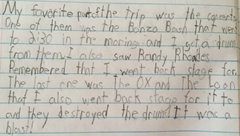 My favorite part of the trip was the concerts
One of them was the Bonzo Bash that went
to 2:30 in the morning and I got a drum
from them. I also saw Randy Rhodes
Remembered that I went back stage for.
The last one was the OX and The Loon
that I also went back stage for it to
and they destroyed the drums! It was a
blast!